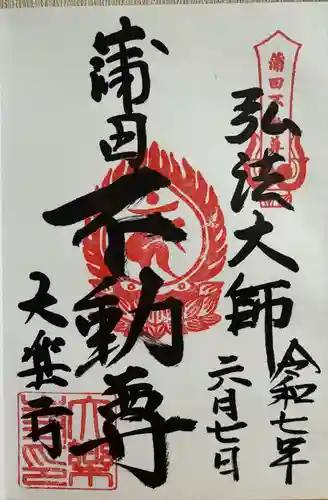 蒲田不動尊
弘法大師
令和七年
六月七日
蒲田不動尊
大楽寺